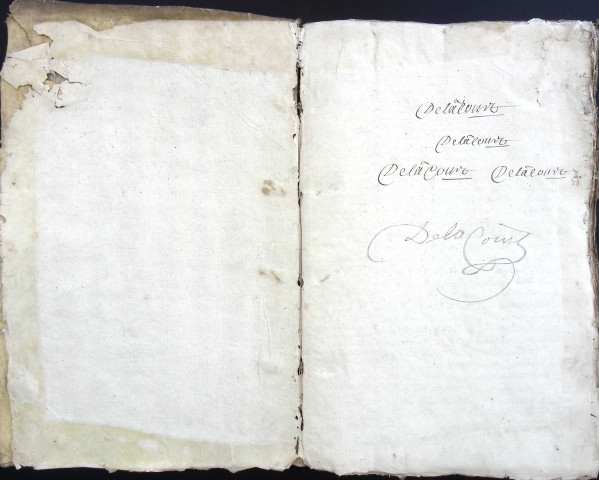 Delacourt
Delacourt
DelaCourt Delacourt
Dela Court